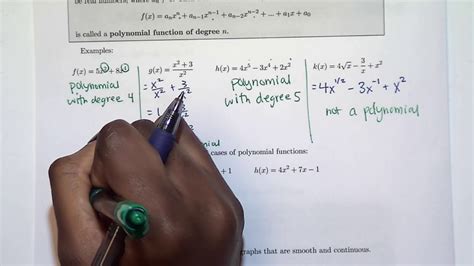 be real numbers, where
f(x) = aₙxⁿ + aₙ₋₁xⁿ⁻¹ + aₙ₋₂xⁿ⁻² + ... + a₁x + a₀
is called a polynomial function of degree n.
Examples:
f(x) = 5x + 8x
polynomial
with degree 4
g(x) = x² + 3 / x²
= x²/x² + 3/x²
= 1
h(x) = 4x⁵ − 3x⁴ + 2x²
polynomial
with degree 5
k(x) = 4√x − 3/x + x²
= 4x^1/2 − 3x⁻¹ + x²
not a polynomial
cases of polynomial functions:
+ 1
h(x) = 4x² + 7x − 1
graphs that are smooth and continuous.